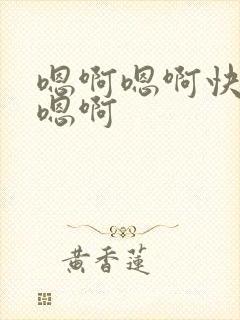 嗯啊嗯啊快
嗯啊
黄香莲